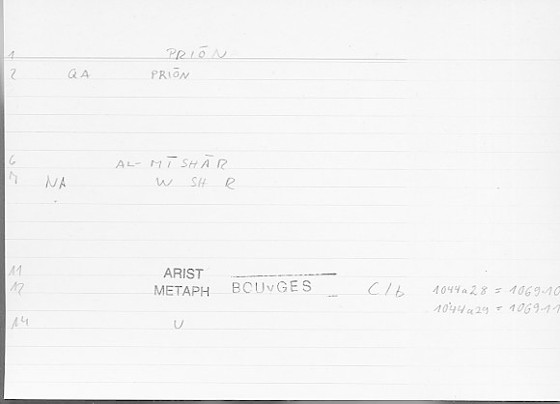 1 PRIŌN
2 QA PRIŌN
6 AL-MĪSHĀR
7 NA W SH R
11 ARIST
12 METAPH BOUYGES C/b 1044a28 = 1069-10
1044a29 = 1069-11
14 U